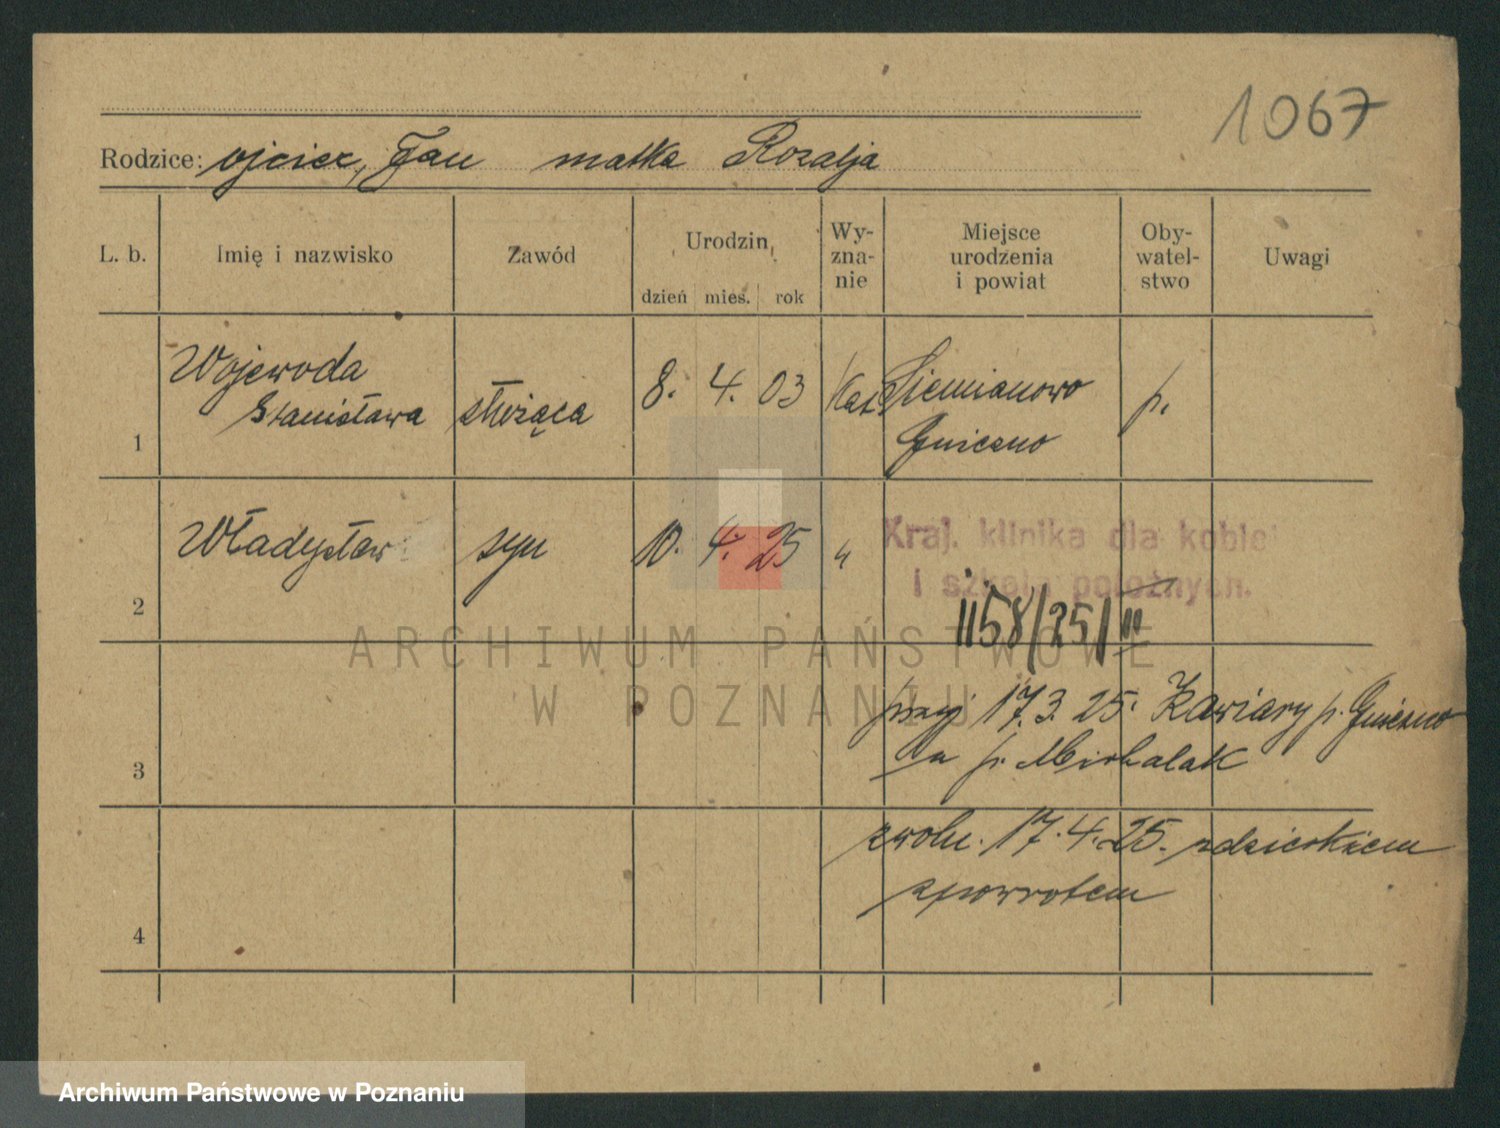 1067
Rodzice: ojciec, Jan matka Rozalja
L. b. Imię i nazwisko Zawód Urodzin dzień mies. rok Wy-zna-nie Miejsce urodzenia i powiat Oby-watel-stwo Uwagi
1 Wojewoda Stanisława służąca 8. 4. 03 Kat Siemianowo Gniezno p.
2 Władysław syn 10. 4. 25 "
Kraj. klinika dla kobiet
i szkoła położnych.
1158/25/III
przyj 17.3.25. Kawiary p. Gniezno
3 u p. Michalak
zwoln. 17.4.25. z dzieckiem
zpowrotem
4
ARCHIWUM PAŃSTWOWE
W POZNANIU
Archiwum Państwowe w Poznaniu